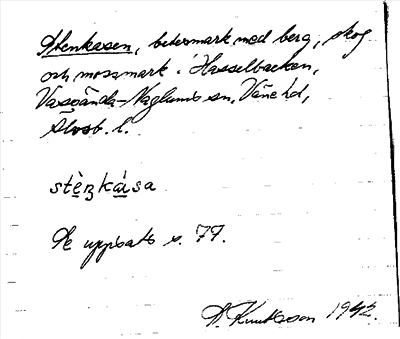 Stenkasen, betesmark med berg, skog
och mossmark i Hasselbacken,
Vassända-Naglums sn, Väne hd,
Älvsb. l.
stènkása
Se uppsats s. 77.
A. Knutsson 1942.